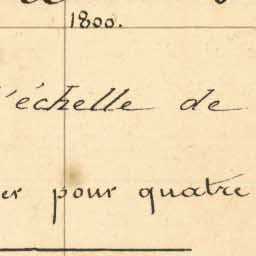 1800.
l'échelle de
er pour quatre